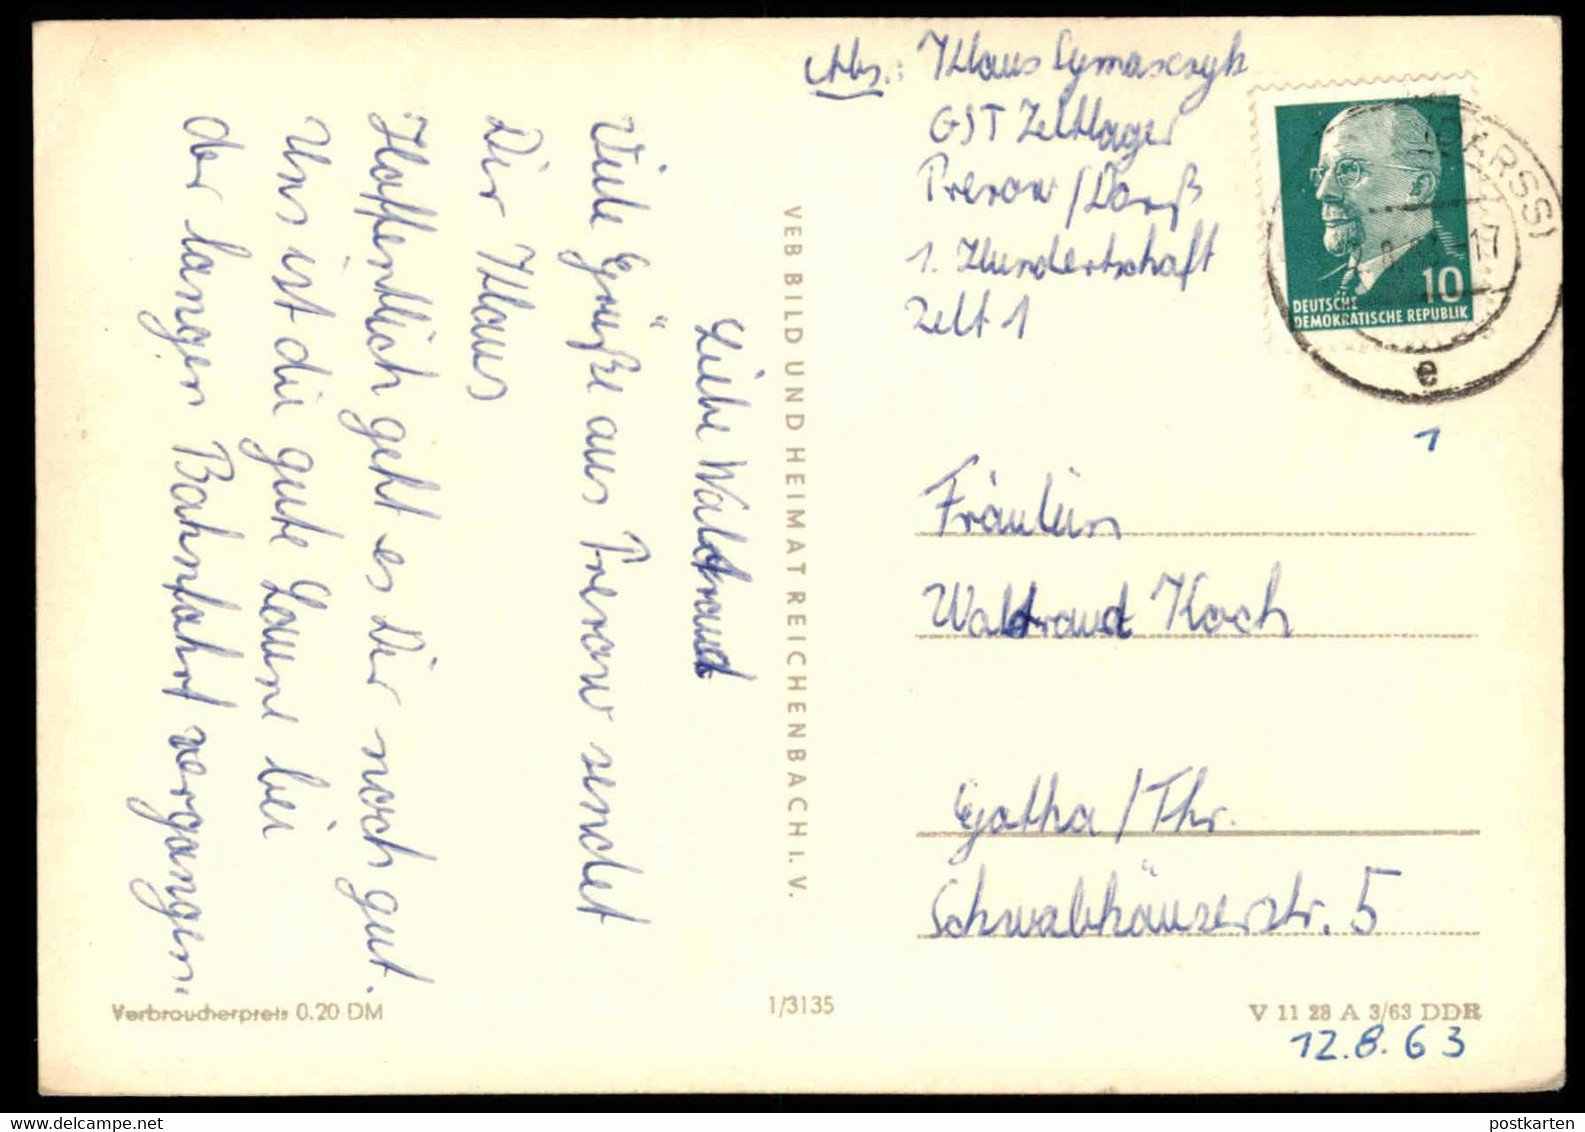 Abs.: Klaus Cymasczyk
GST Zeltlager
Prerow / Darß
1. Hundertschaft
Zelt 1
DEUTSCHE
DEMOKRATISCHE REPUBLIK
10
(DARSS)
-17
e
1
Liebe Waldtraud
Viele Grüße aus Prerow sendet
Dir Klaus
Hoffentlich geht es Dir noch gut.
Uns ist die gute Laune bei
der langen Bahnfahrt vergangen.
VEB BILD UND HEIMAT REICHENBACH I. V.
Fräulein
Waldtraud Koch
Gotha / Thr.
Schwabhäuserstr. 5
Verbraucherpreis 0.20 DM
1/3135
V 11 28 A 3/63 DDR
12.8.63
postkarten